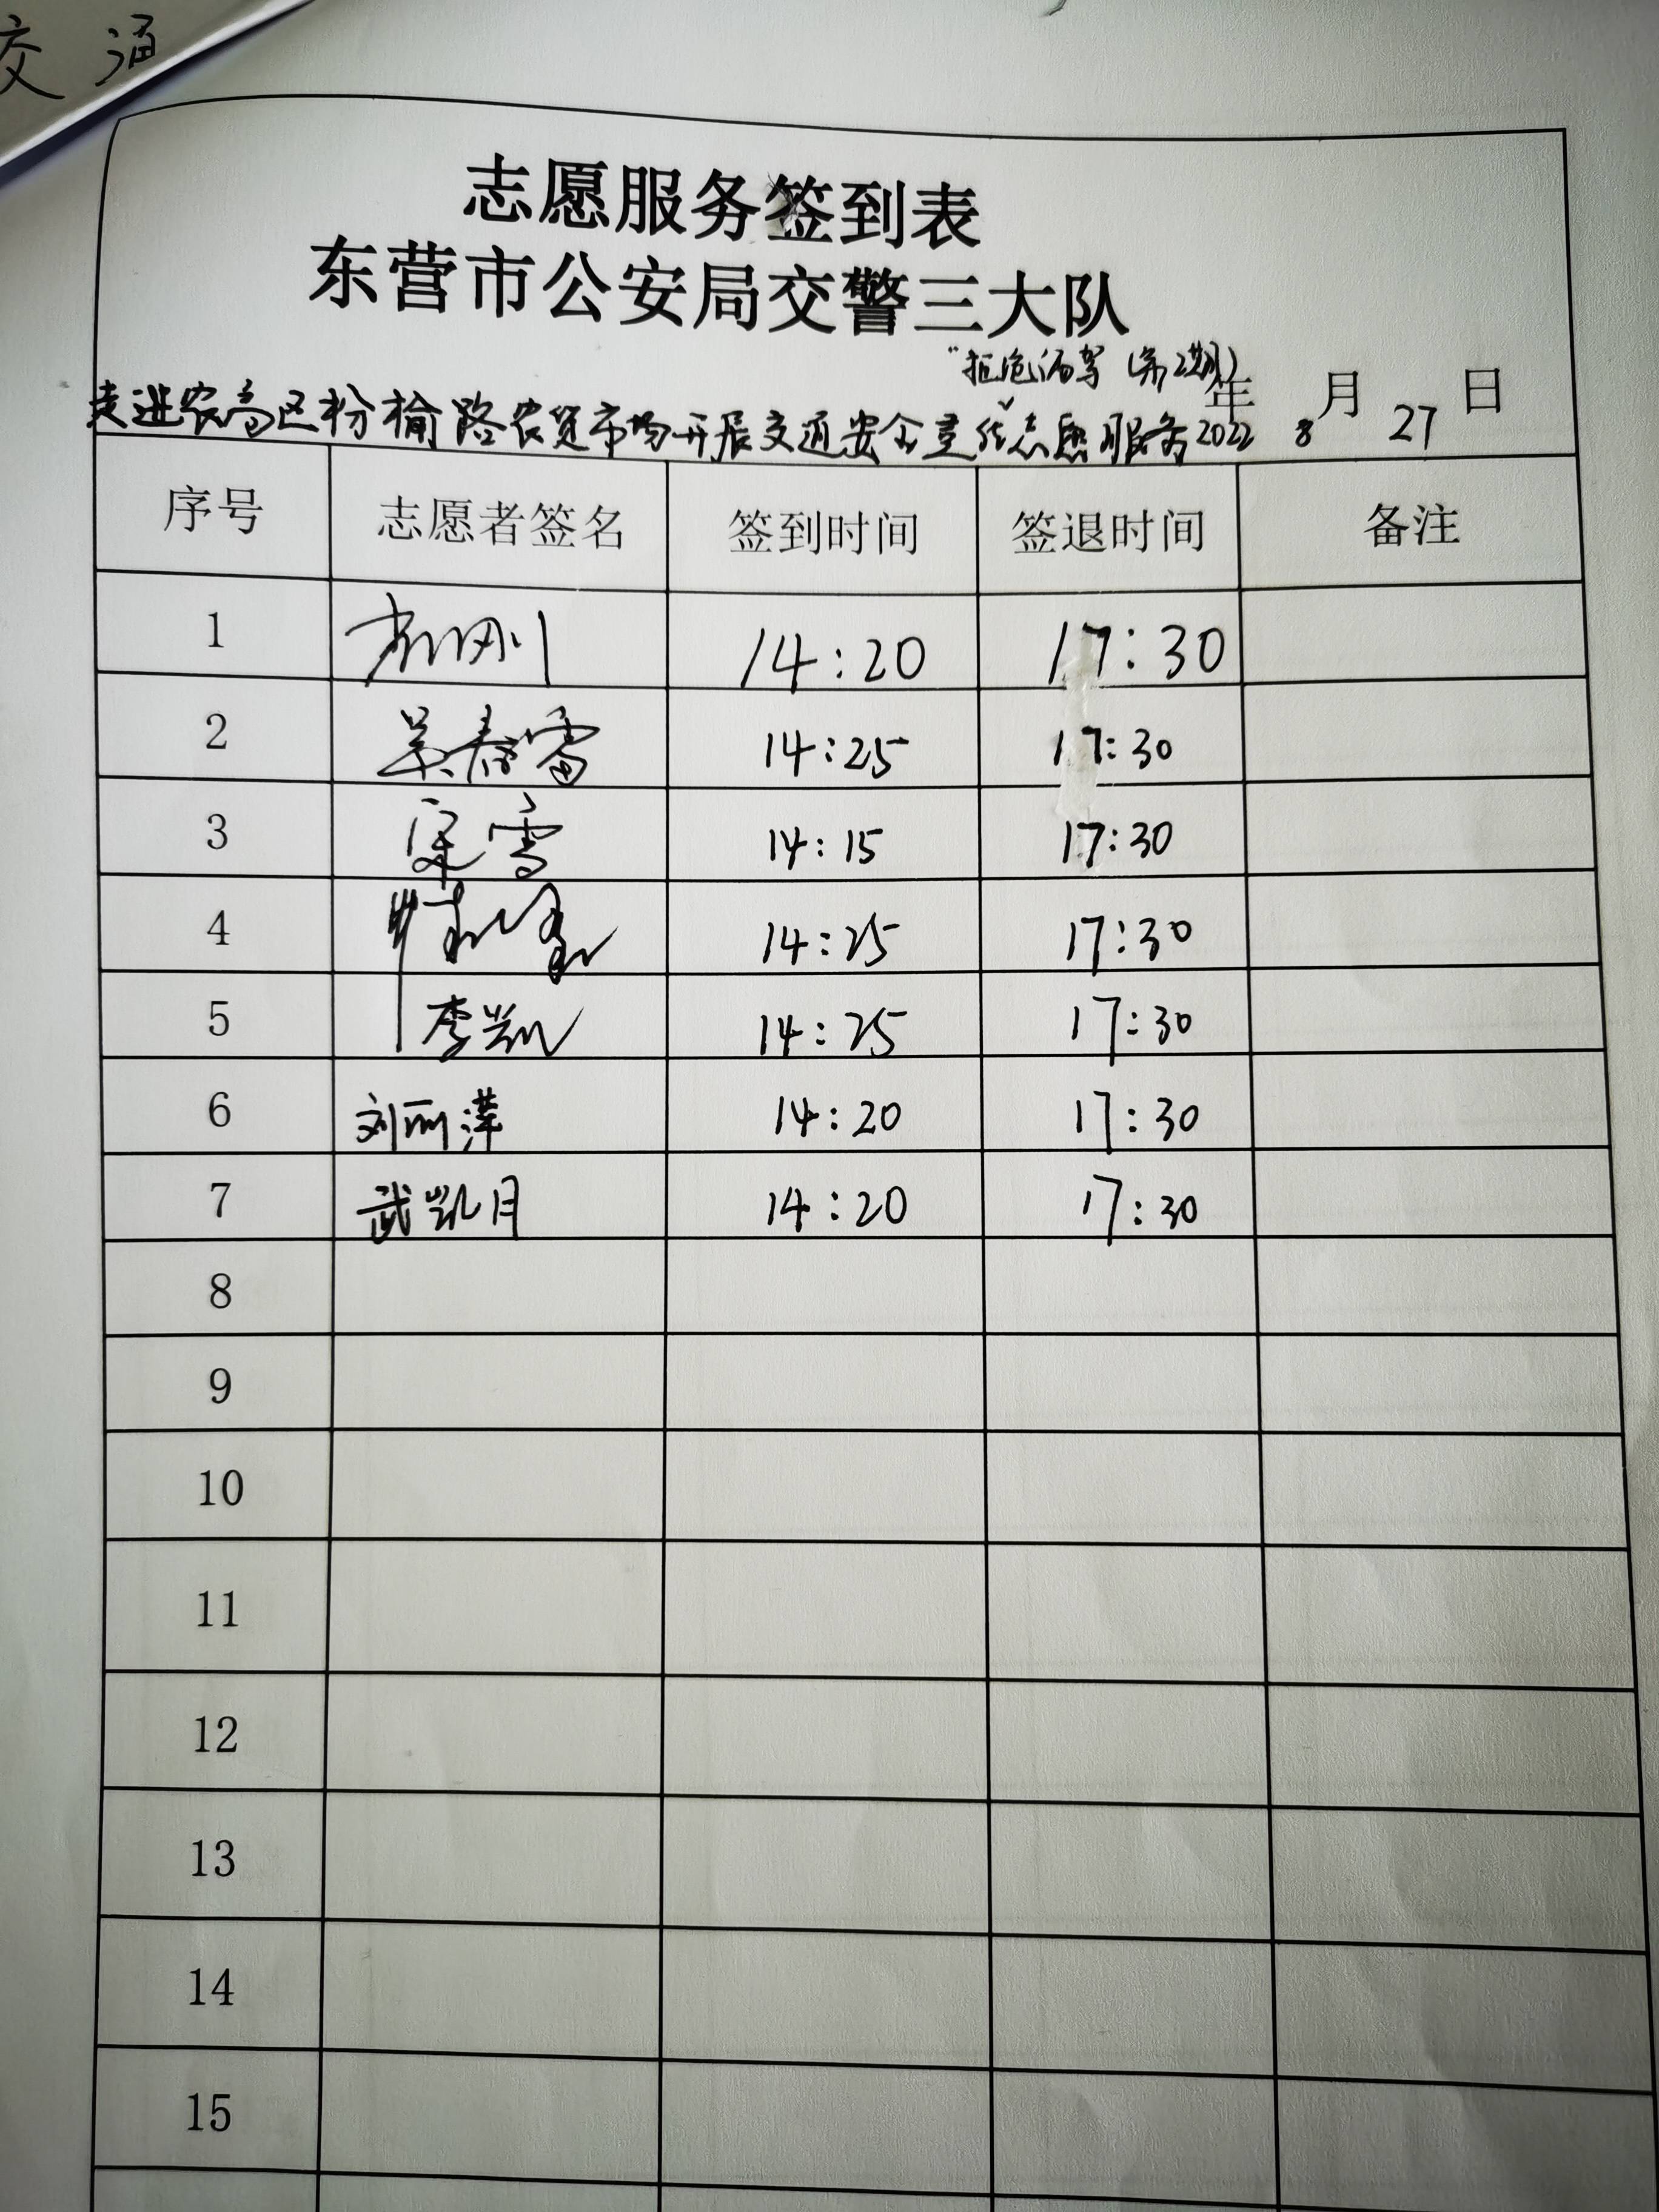 交通
志愿服务签到表
东营市公安局交警三大队
"拒绝酒驾(第2期)
走进农高区枌榆路农贸市场开展交通安全宣传志愿服务2022年8月27日
序号 志愿者签名 签到时间 签退时间 备注
1 14:20 17:30
2 吴春雷 14:25 17:30
3 宋雪 14:15 17:30
4 14:25 17:30
5 李凯 14:25 17:30
6 刘丽萍 14:20 17:30
7 武凯月 14:20 17:30
8
9
10
11
12
13
14
15